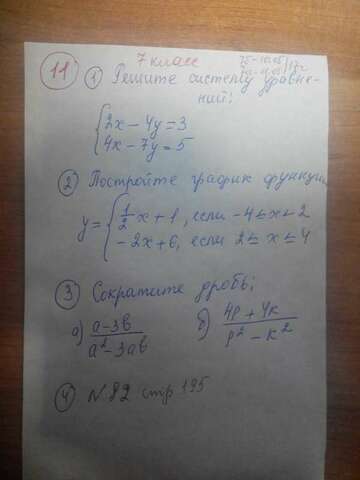 7 класс
11 1 Решите систему уравне-
ний:
2x - 4y = 3
4x - 7y = 5
2 Постройте график функции
y = { 1/2 x + 1, если -4 ≤ x < 2
-2x + 6, если 2 ≤ x ≤ 4
3 Сократите дробь:
а) a-3b / a² - 3ab б) 4p + 4k / p² - k²
4 N 82 стр 195